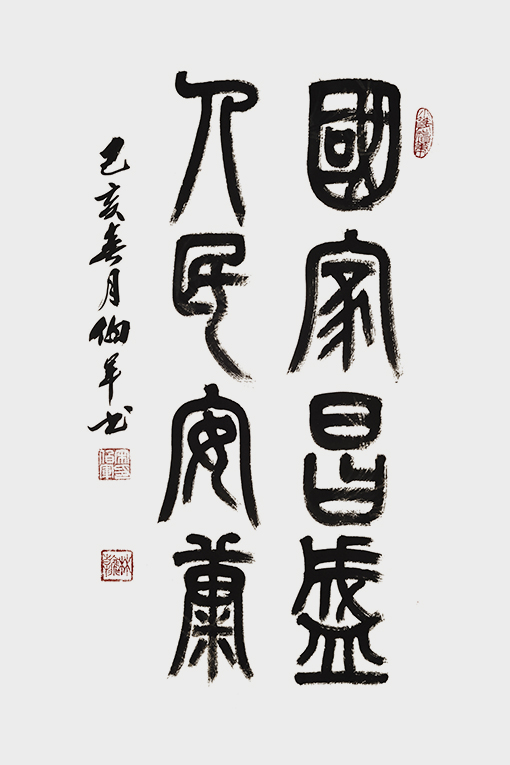 國家昌盛
人民安康
己亥春月伯军书